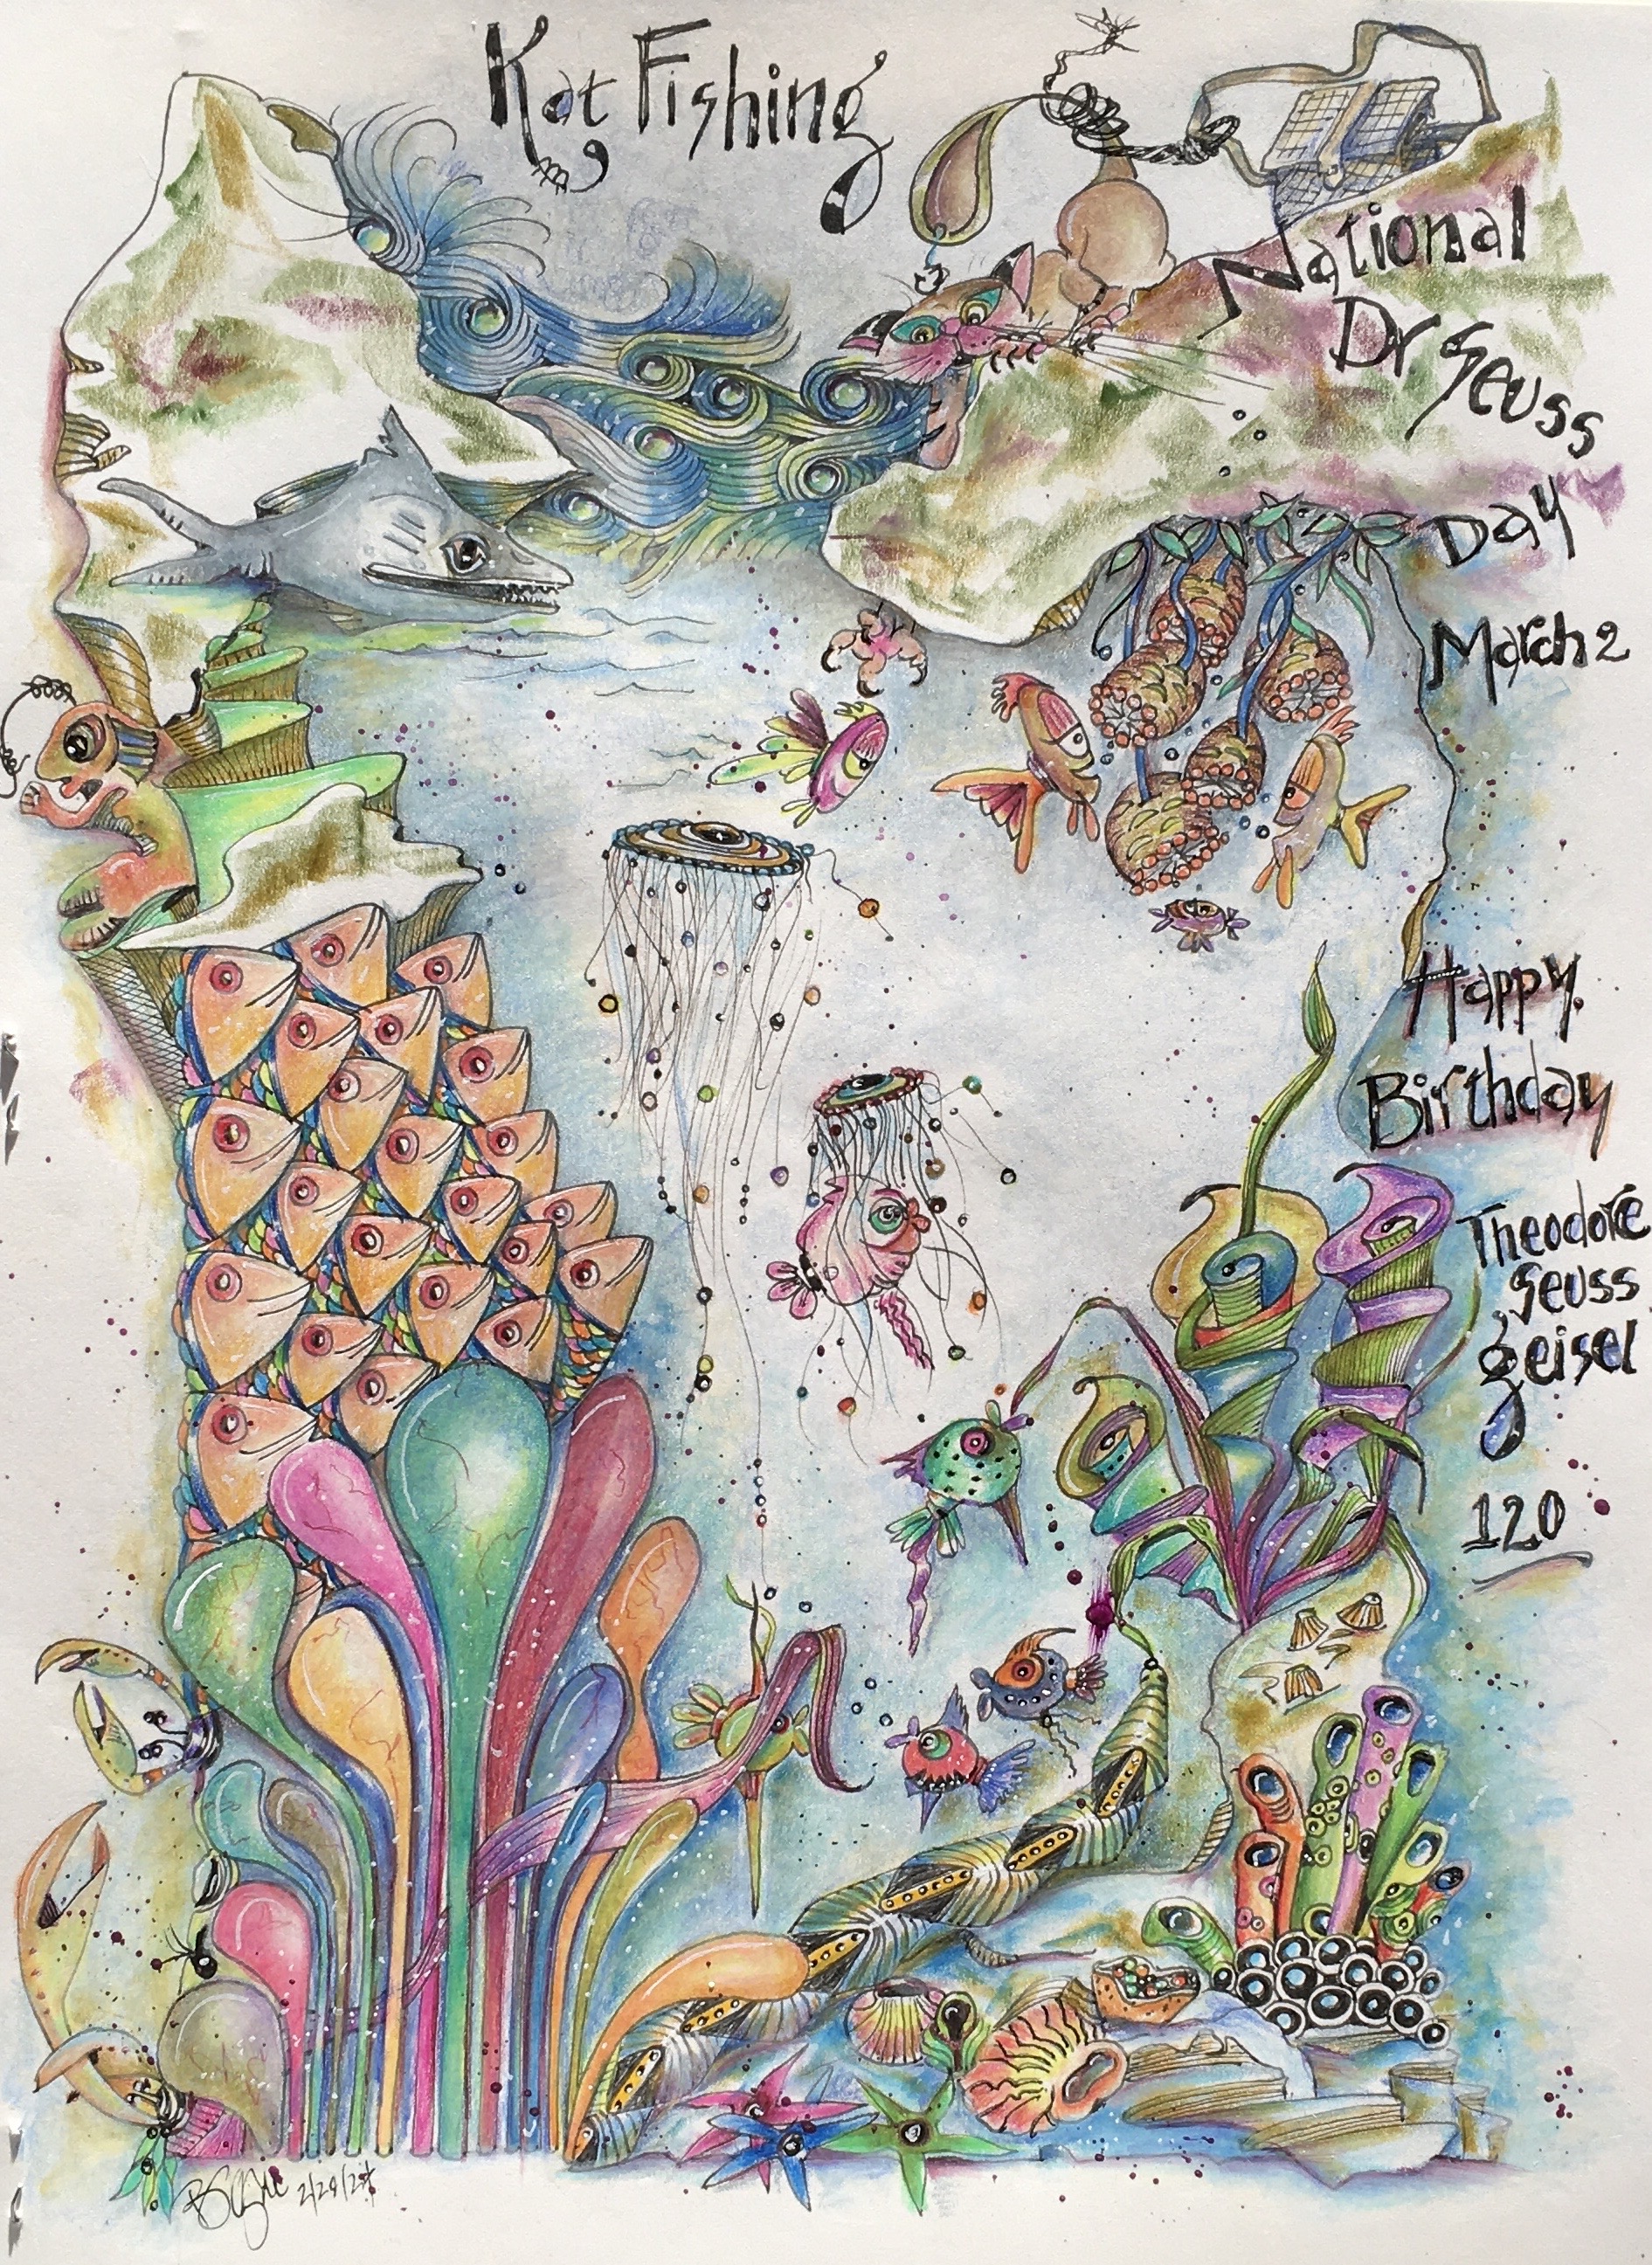 Kat Fishing
National
Dr Seuss
Day
March 2
Happy
Birthday
Theodore
Seuss
geisel
120
2/29/24